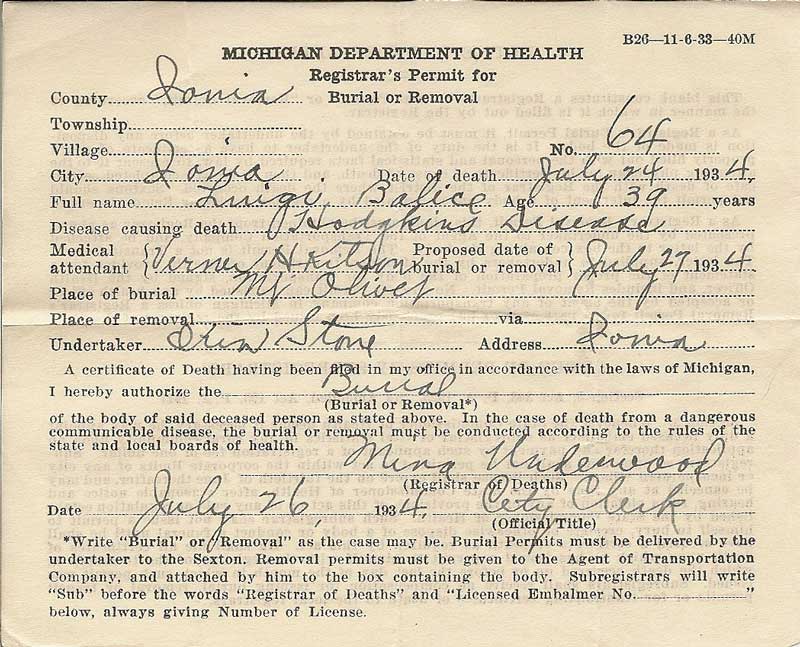 B26—11-6-33—40M
MICHIGAN DEPARTMENT OF HEALTH
Registrar's Permit for
County Ionia Burial or Removal
Township
Village No. 64
City Ionia Date of death July 24 1934,
Full name Luigi Balice Age 39 years
Disease causing death Hodgkins Disease
Medical attendant } Verner H Kitson Proposed date of burial or removal } July 27 1934
Place of burial Mt Olivet
Place of removal via
Undertaker Stone Address Ionia
A certificate of Death having been filed in my office in accordance with the laws of Michigan,
I hereby authorize the Burial
(Burial or Removal*)
of the body of said deceased person as stated above. In the case of death from a dangerous
communicable disease, the burial or removal must be conducted according to the rules of the
state and local boards of health.
Mina Underwood
(Registrar of Deaths)
Date July 26, 1934, City Clerk
(Official Title)
*Write "Burial" or "Removal" as the case may be. Burial Permits must be delivered by the
undertaker to the Sexton. Removal permits must be given to the Agent of Transportation
Company, and attached by him to the box containing the body. Subregistrars will write
"Sub" before the words "Registrar of Deaths" and "Licensed Embalmer No. "
below, always giving Number of License.